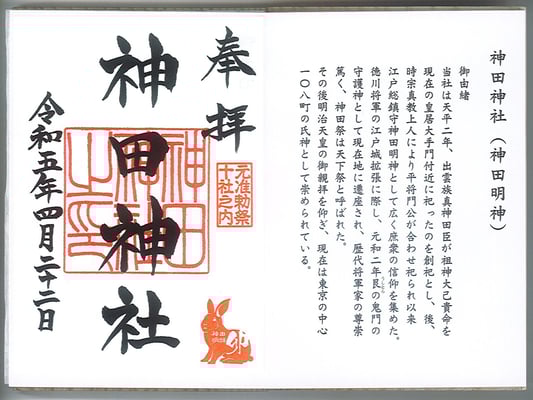 神田神社（神田明神）
御由緒
当社は天平二年、出雲族真神田臣が祖神大己貴命を
現在の皇居大手門付近に祀ったのを創祀とし、後、
時宗真教上人により平将門公が合わせ祀られ以来
江戸総鎮守神田明神として広く庶衆の信仰を集めた。
徳川将軍の江戸城拡張に際し、元和二年艮の鬼門の
守護神として現在地に遷座され、歴代将軍家の尊崇
篤く、神田祭は天下祭と呼ばれた。
その後明治天皇の御親拝を仰ぎ、現在は東京の中心
一〇八町の氏神として崇められている。
奉拝
元准勅祭
十社之内
卯
神田神社
令和五年四月二十二日